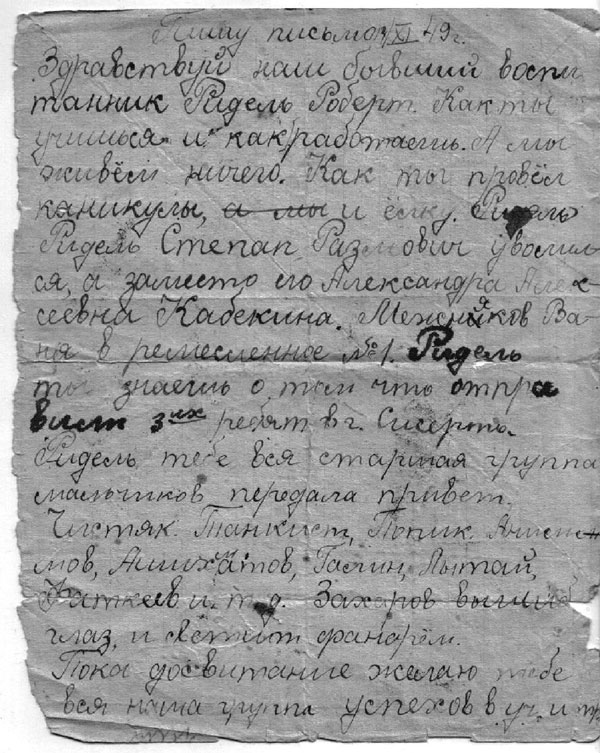 Пишу письмо 1/XI 49 г.
Здравствуй наш бывший воспи
танник Ридель Роберт. Как ты
учишься и как работаешь. А мы
живём ничего. Как ты провёл
каникулы, а мы и ёлку. Ридель
Ридель Степан Размович уволил-
ся, а заместо его Александра Алек-
сеевна Кабекина. Межняков Ва-
ня в ремесленное №1. Ридель
ты знаешь о том что отпра
вили 3их ребят в г. Сисерть.
Ридель тебе вся старшая группа
мальчиков передала привет.
Чистяк. Танкист, Попик,
мов, Галин, Лытай,
и т.д. Захаров
глаз, и светит фанарём.
Пока досвитание желаю тебе
вся наша группа успехов в уч. и